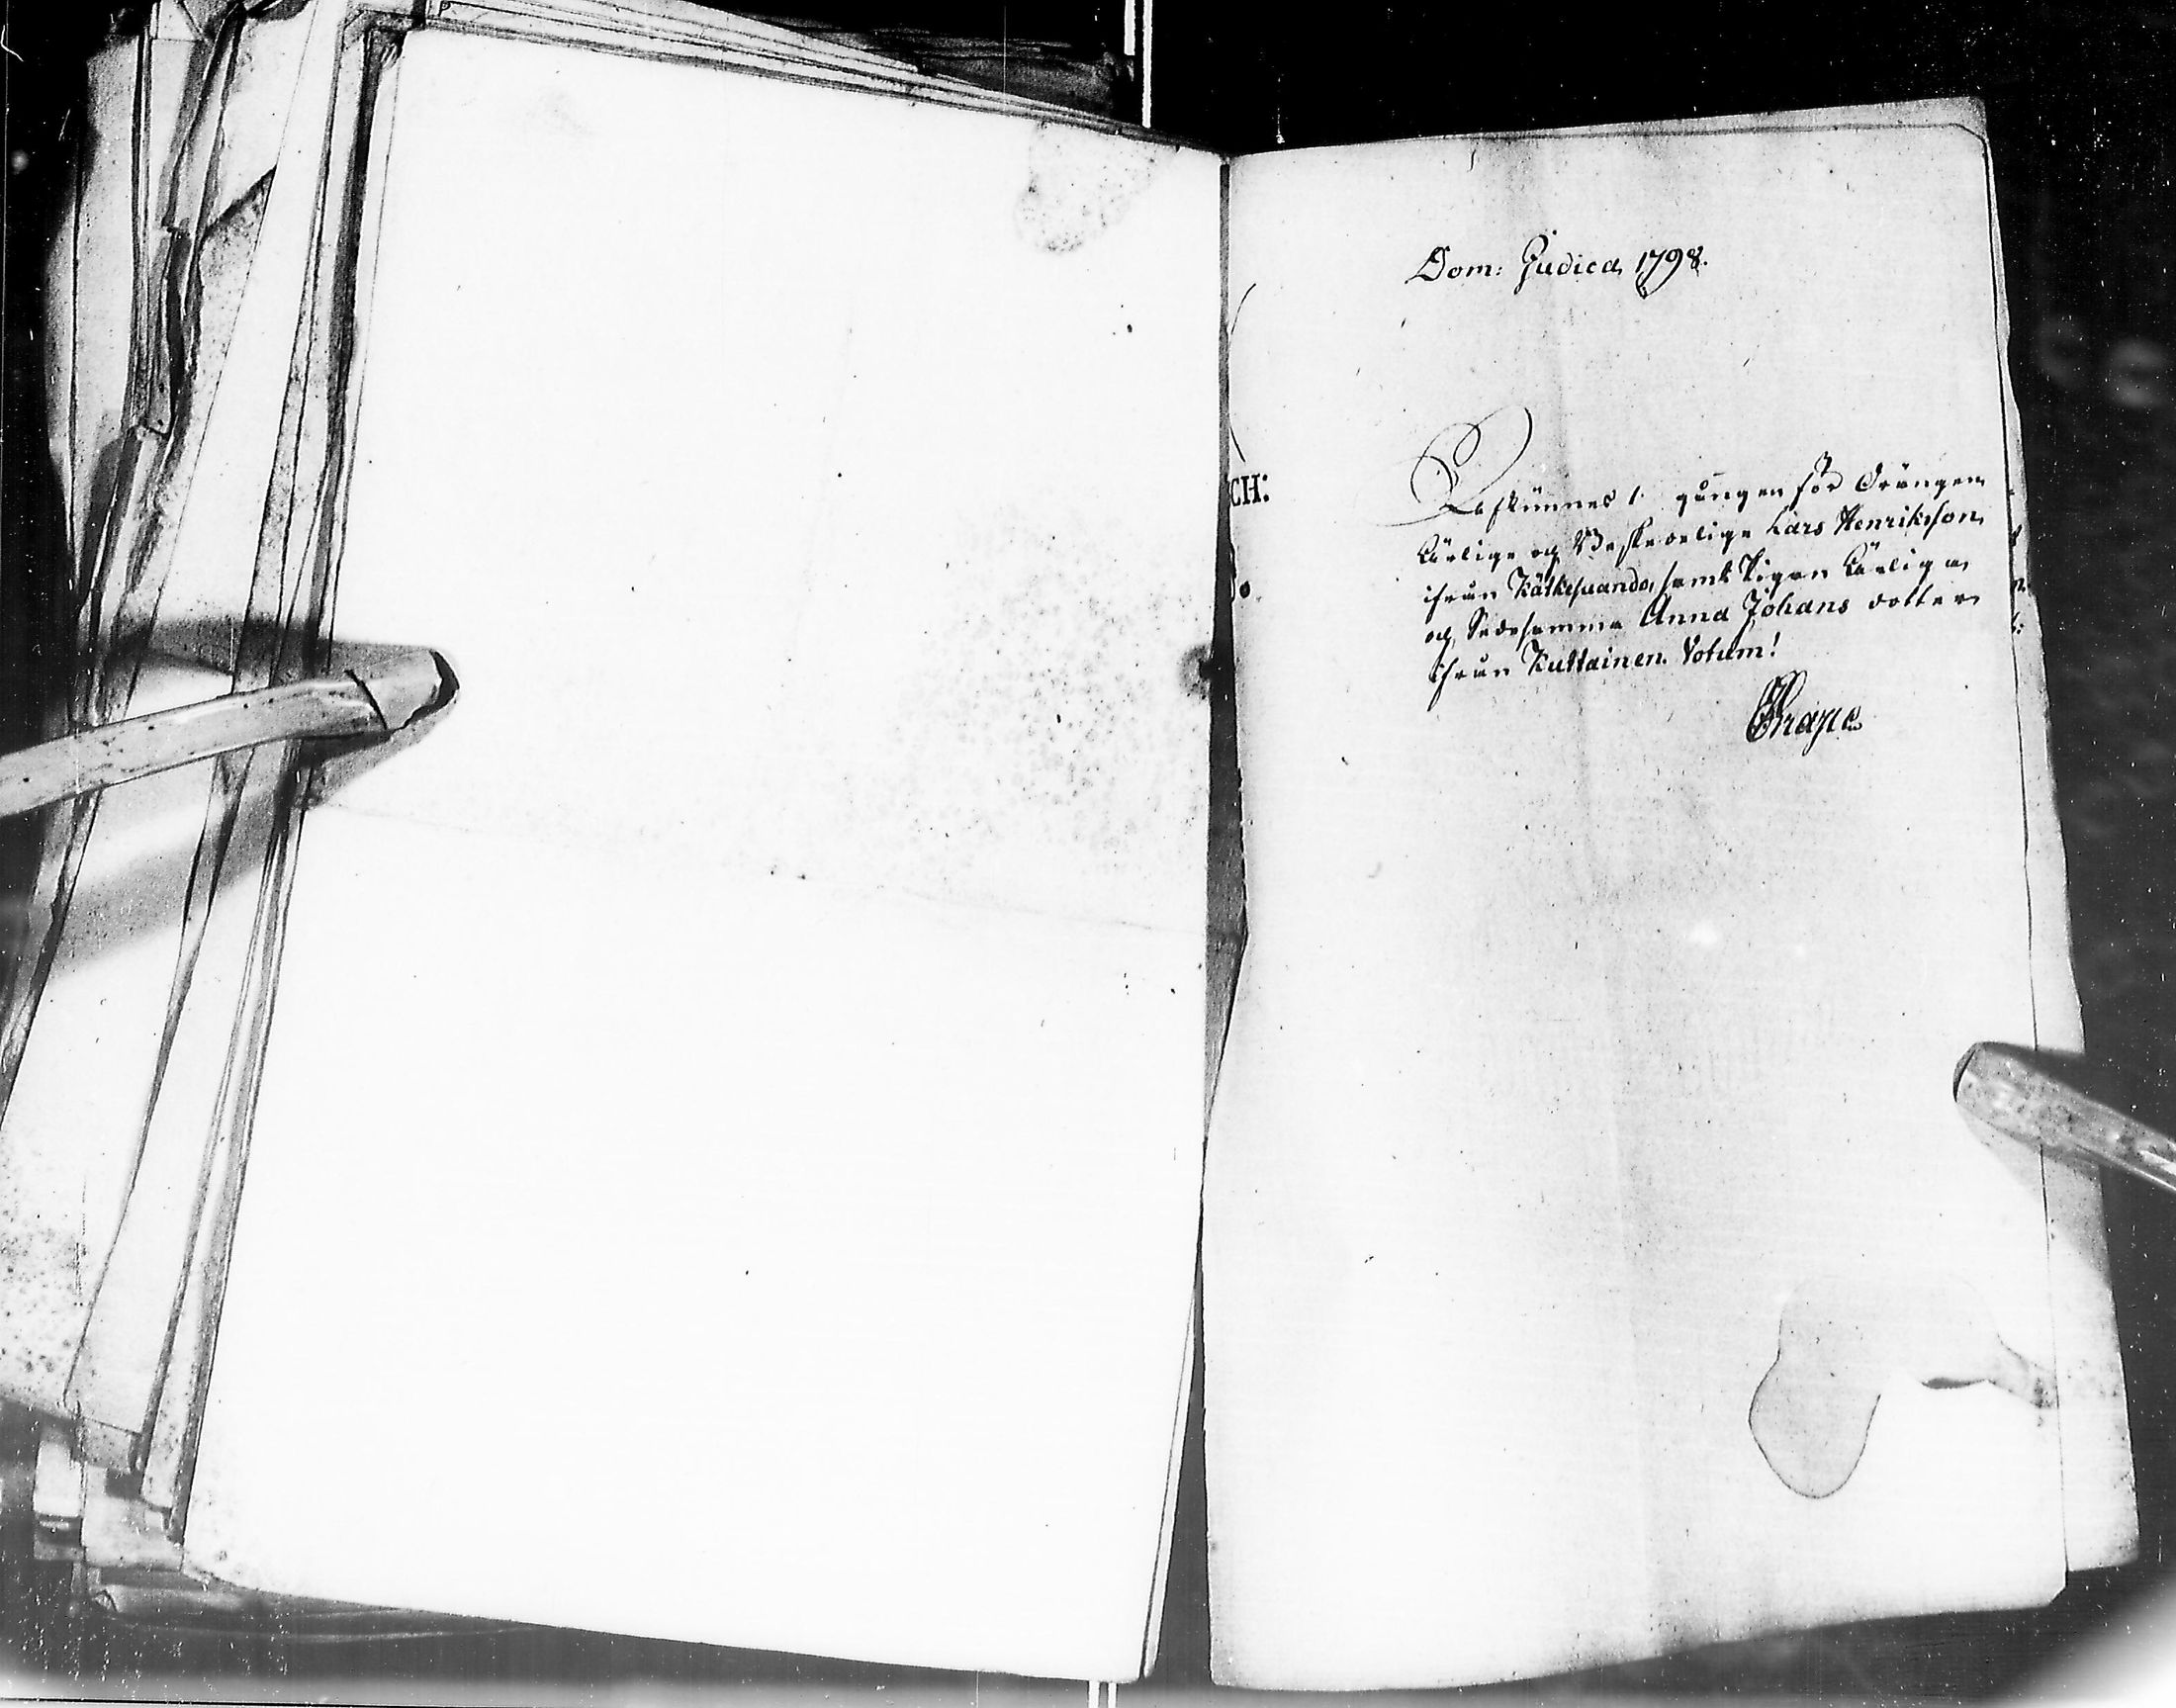 Dom: Judica, 1798.
CH:
Afkunnes 1. gången för Drängen
Ärlige och Beskedelige Lars Henriksson,
ifrån Kätkesuando, samt Pigan Ärliga
och Sedesamma Anna Johans dotter
ifrån Kuttainen. Votum!